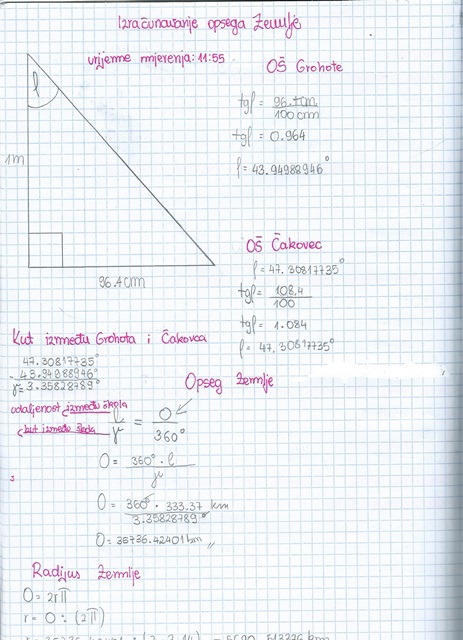 Izračunavanje opsega Zemlje
vrijeme mjerenja: 11:55
OŠ Grohote
tgρ = 96.4cm
100cm
tgρ = 0.964
ρ = 43.94988946°
ρ
1m
96.4cm
OŠ Čakovec
ρ = 47.30817735°
tgρ = 108,4
100
tgρ = 1.084
ρ = 47.30817735°
Kut između Grohota i Čakovca
47.30817735°
-43.94988946°
γ = 3.35828789°
Opseg Zemlje
udaljenost između škola
kut između škola
l
γ
=
O
360°
O = 360° · l
γ
O = 360° · 333.37 km
3.35828789°
O = 35736.42401 km
Radijus Zemlje
O = 2rπ
r = O : (2π)